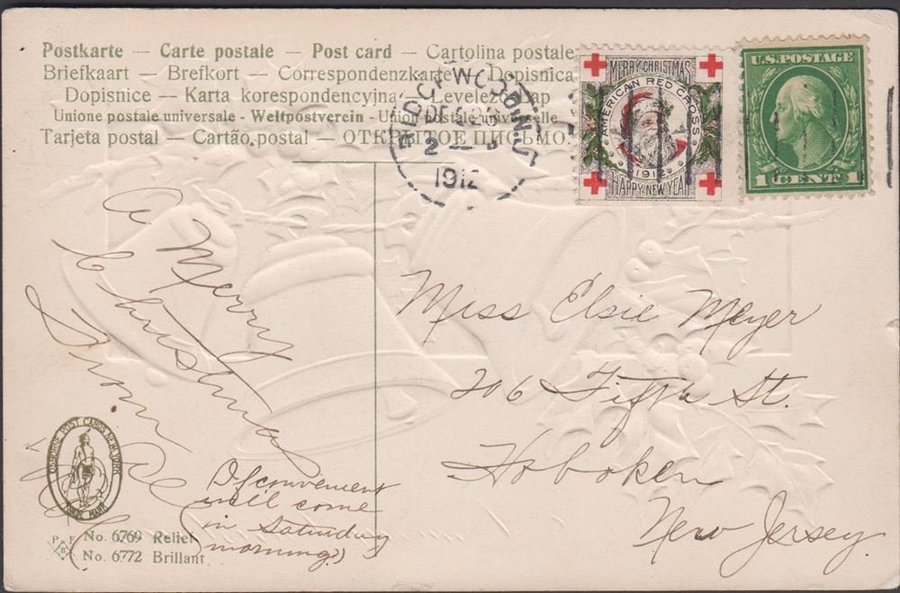 Postkarte — Carte postale — Post card — Cartolina postale
Briefkaart — Brefkort — Correspondenzkarte — Dopisnica
Dopisnice — Karta korespondencyjna — Levelező-lap
Unione postale universale - Weltpostverein - Union postale universelle
Tarjeta postal — Cartão postal — ОТКРЫТОЕ ПИСЬМО.
2 —
1912
MERRY CHRISTMAS
AMERICAN RED CROSS
1912
HAPPY NEW YEAR
U.S. POSTAGE
1 CENT 1
A Merry
Christmas
From
If convenient
will come
in Saturday
morning?)
Miss Elsie Meyer
206 Fifth St.
Hoboken
New Jersey.
POST CARD NEW YORK
TRADE MARK
P F
B
No. 6769 Relief
No. 6772 Brillant